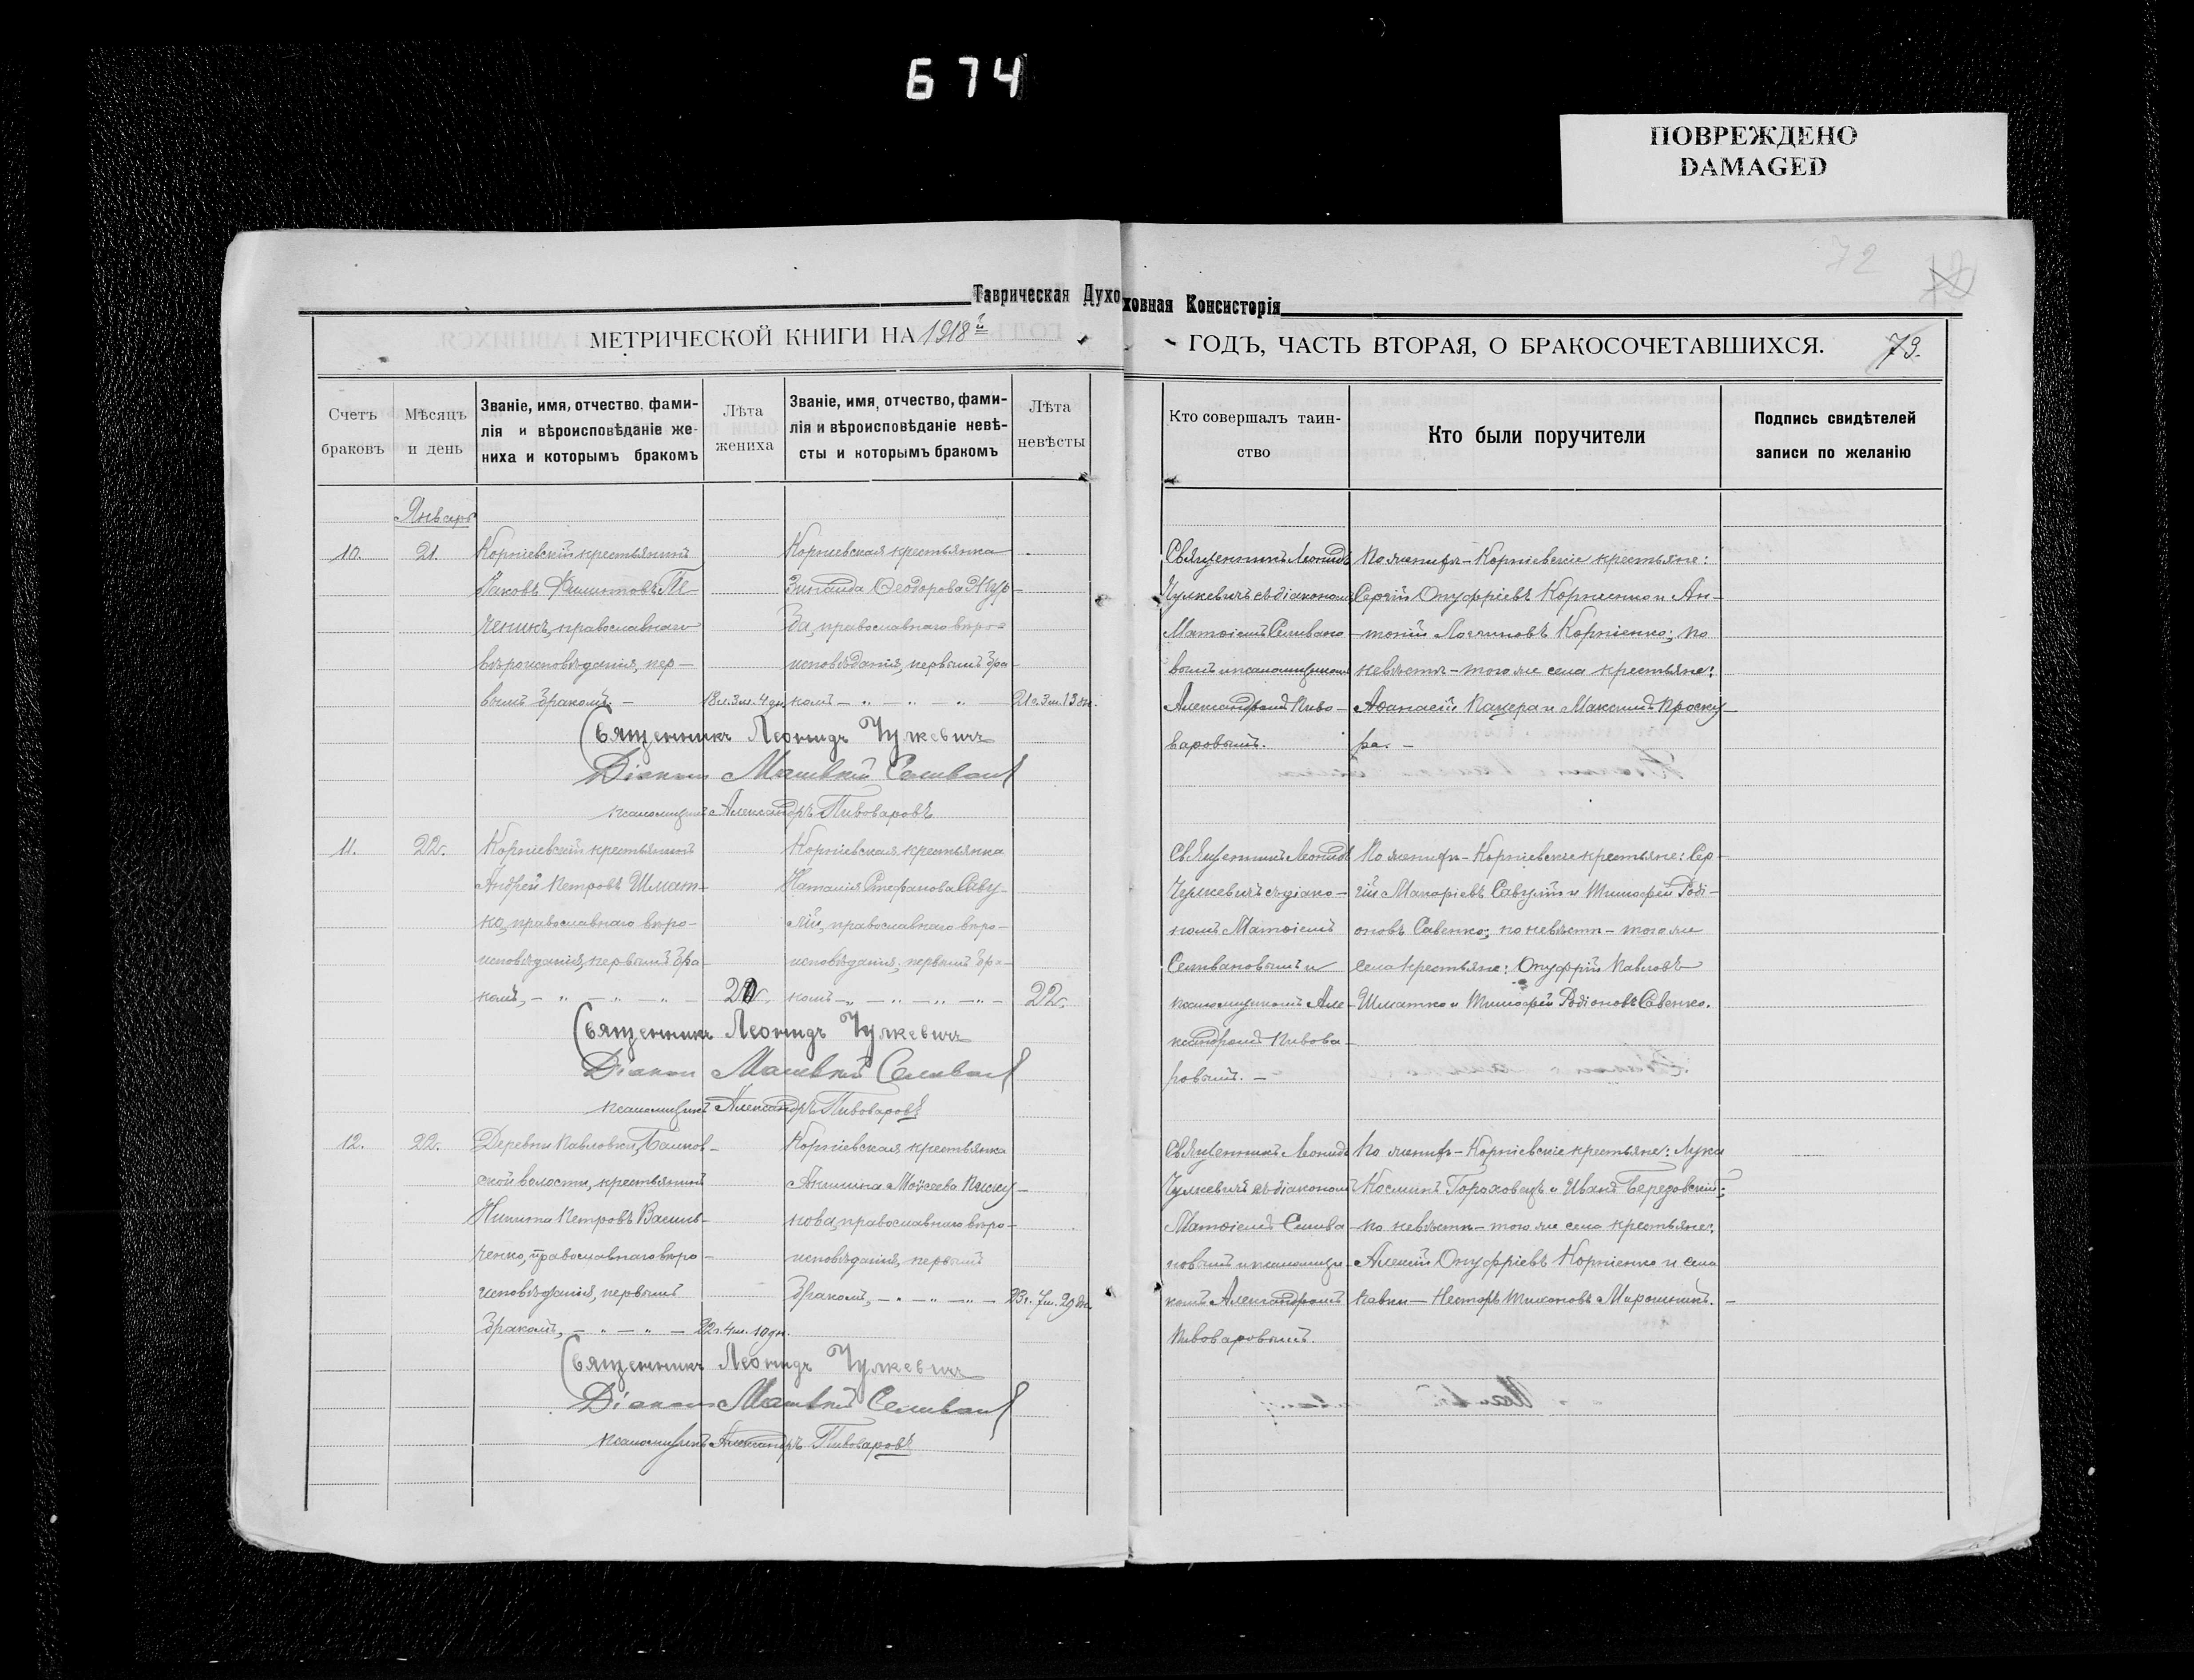 674
ПОВРЕЖДЕНО
DAMAGED
72
Таврическая Духо
ховная Консисторія
МЕТРИЧЕСКОЙ КНИГИ НА 1918й
ГОДЪ, ЧАСТЬ ВТОРАЯ, О БРАКОСОЧЕТАВШИХСЯ.
73.
Счетъ браковъ
Мѣсяцъ и день
Званіе, имя, отчество, фами-
лія и вѣроисповѣданіе же-
ниха и которымъ бракомъ
Лѣта жениха
Званіе, имя, отчество, фами-
лія и вѣроисповѣданіе невѣ-
сты и которымъ бракомъ
Лѣта невѣсты
Кто совершалъ таин-
ство
Кто были поручители
Подпись свидѣтелей
записи по желанію
Январь
10.
21.
Корніевскій крестьянинъ
Іаковъ
ченикъ, православнаго
вѣроисповѣданія, пер-
вымъ бракомъ. -
18 л. 3 м. 4 дн.
Корніевская крестьянка
Зинаида Ѳеодорова
да, православнаго вѣро-
исповѣданія, первымъ бра-
комъ
21 г. 3 м. 13 дн.
Священникъ Леонидъ
Чулкевичъ съ діакономъ
Матѳіемъ Селивано-
вымъ и псаломщикомъ
Александромъ Пиво-
варовымъ.
По женихѣ - Корніевскіе крестьяне:
Сергій Онуфріевъ Корніенко и Ан-
тоній Логгиновъ Корніенко; по
невѣстѣ - того же села крестьяне:
Аѳанасій Пацера и Максимъ Проску-
ра. -
Священникъ Леонидъ Чулкевичъ
Діаконъ Матвѣй Селиванов
псаломщикъ Александръ Пивоваровъ
11.
22.
Корніевскій крестьянинъ
Андрей Петровъ Шмат-
ко, православнаго вѣро-
исповѣданія, первымъ бра-
комъ,
20
Корніевская крестьянка
Наталія Стефанова Саву-
лій, православнаго вѣро-
исповѣданія, первымъ бра-
комъ
22.
Священникъ Леонидъ
Чулкевичъ съ діако-
номъ Матѳіемъ
Селивановымъ и
псаломщикомъ Але-
ксандромъ Пивова-
ровымъ. -
По женихѣ - Корніевскіе крестьяне: Сер-
гій Макаріевъ Савулій и Тимофей Роді-
оновъ Савенко; по невѣстѣ - того же
села крестьяне: Онуфрій Павловъ
Шматко и Тимофей Родіоновъ Савенко.
Священникъ Леонидъ Чулкевичъ
Діаконъ Матвѣй Селиванов
псаломщикъ Александръ Пивоваровъ
12.
22.
Деревни Павловки,
ской волости, крестьянинъ
Никита Петровъ Василь-
ченко, православнаго вѣро-
исповѣданія, первымъ
бракомъ,
22 г. 4 м. 10 дн.
Корніевская крестьянка
Акилина Моѵсеева
нова, православнаго вѣро-
исповѣданія, первымъ
бракомъ,
23 г. 7 м. 29 дн.
Священникъ Леонидъ
Чулкевичъ съ діакономъ
Матѳіемъ Селива-
новымъ и псаломщи-
комъ Александромъ
Пивоваровымъ.
По женихѣ - Корніевскіе крестьяне: Лука
Космичъ Гороховецъ и Иванъ Березовскій;
по невѣстѣ - того же села крестьяне:
Алексій Онуфріевъ Корніенко и села
- Несторъ Тихоновъ Мирошникъ. -
Священникъ Леонидъ Чулкевичъ
Діаконъ Матвѣй Селиванов
псаломщикъ Александръ Пивоваровъ